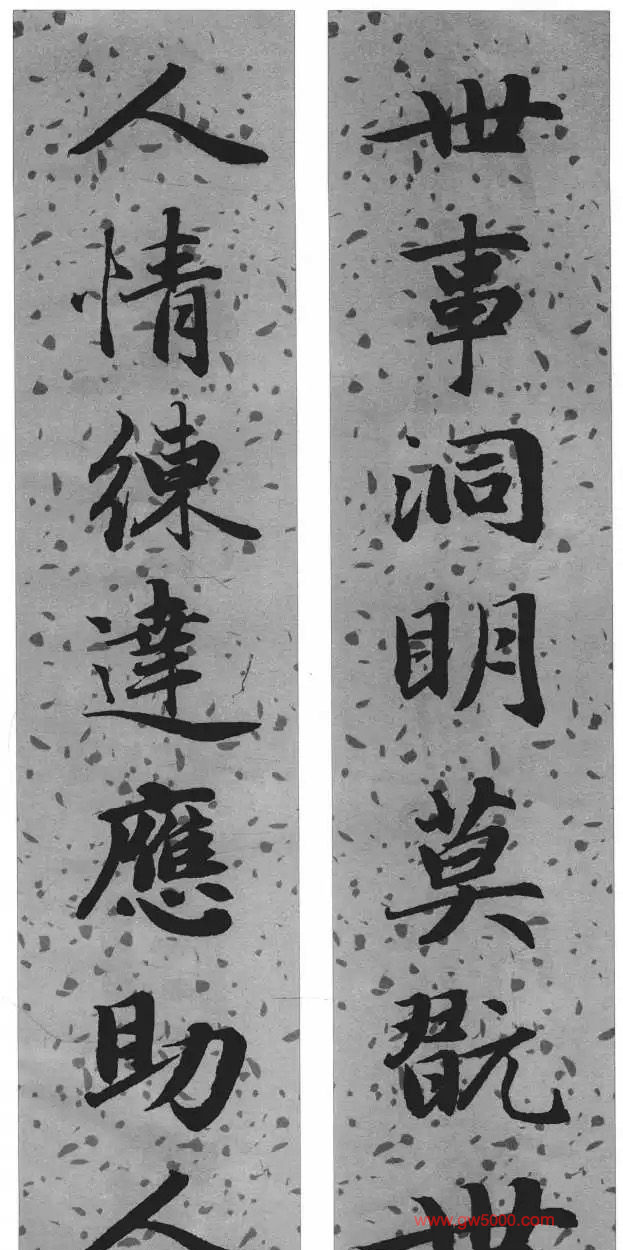 世事洞明莫翫世
人情練達應助人
www.gw5000.com